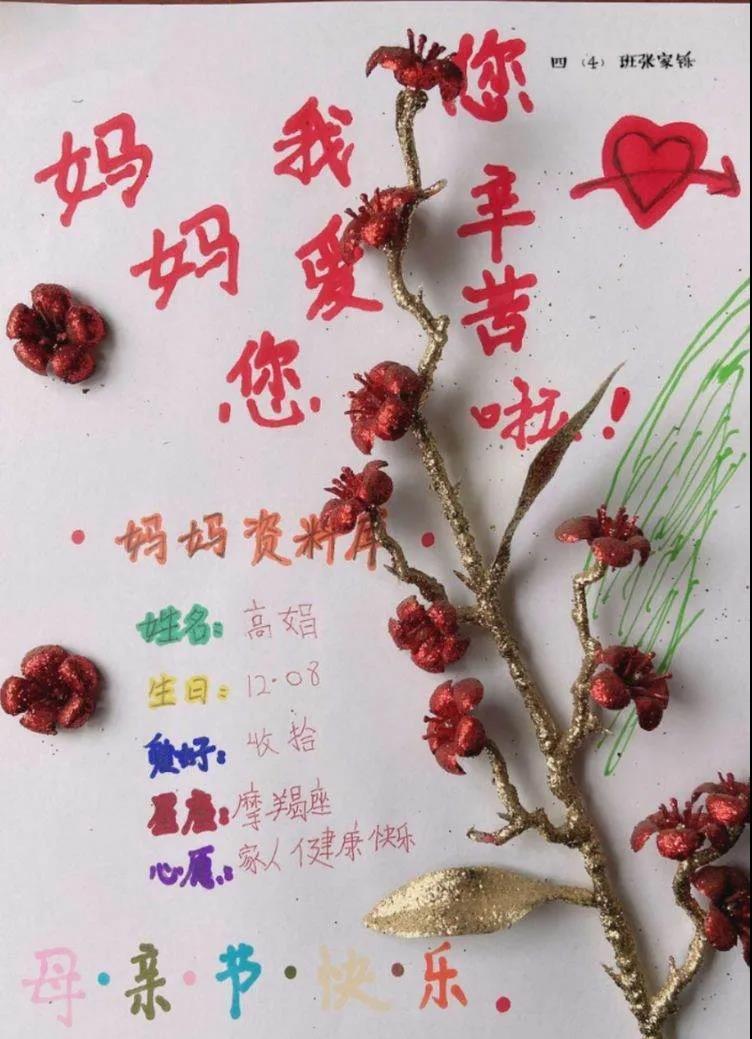 四（4）班张家铄
妈妈
我爱您
您辛苦啦！
妈妈资料库
姓名：高娟
生日：12·08
爱好：收拾
星座：摩羯座
心愿：家人健康快乐
母·亲·节·快·乐